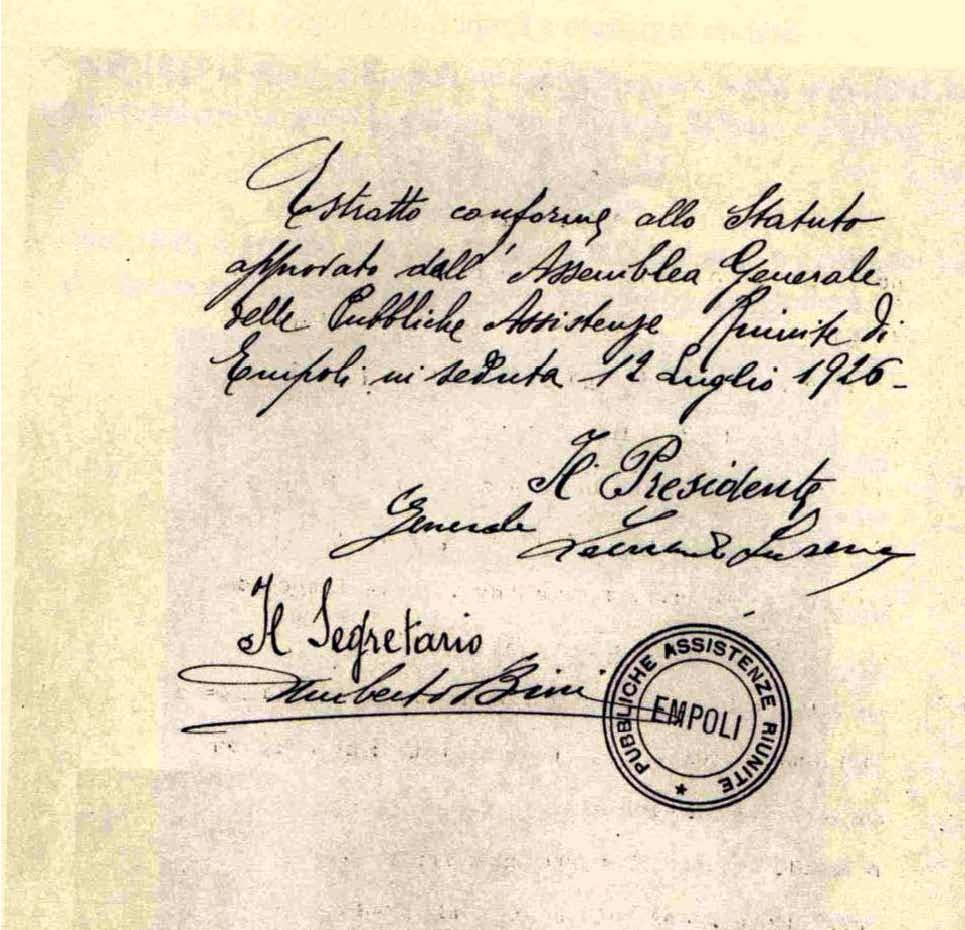 Estratto conforme allo Statuto
approvato dall' Assemblea Generale
delle Pubbliche Assistenze Riunite di
Empoli in seduta 12 Luglio 1926-
Il Presidente
Generale
Il Segretario
Umberto Bini
PUBBLICHE ASSISTENZE RIUNITE
EMPOLI